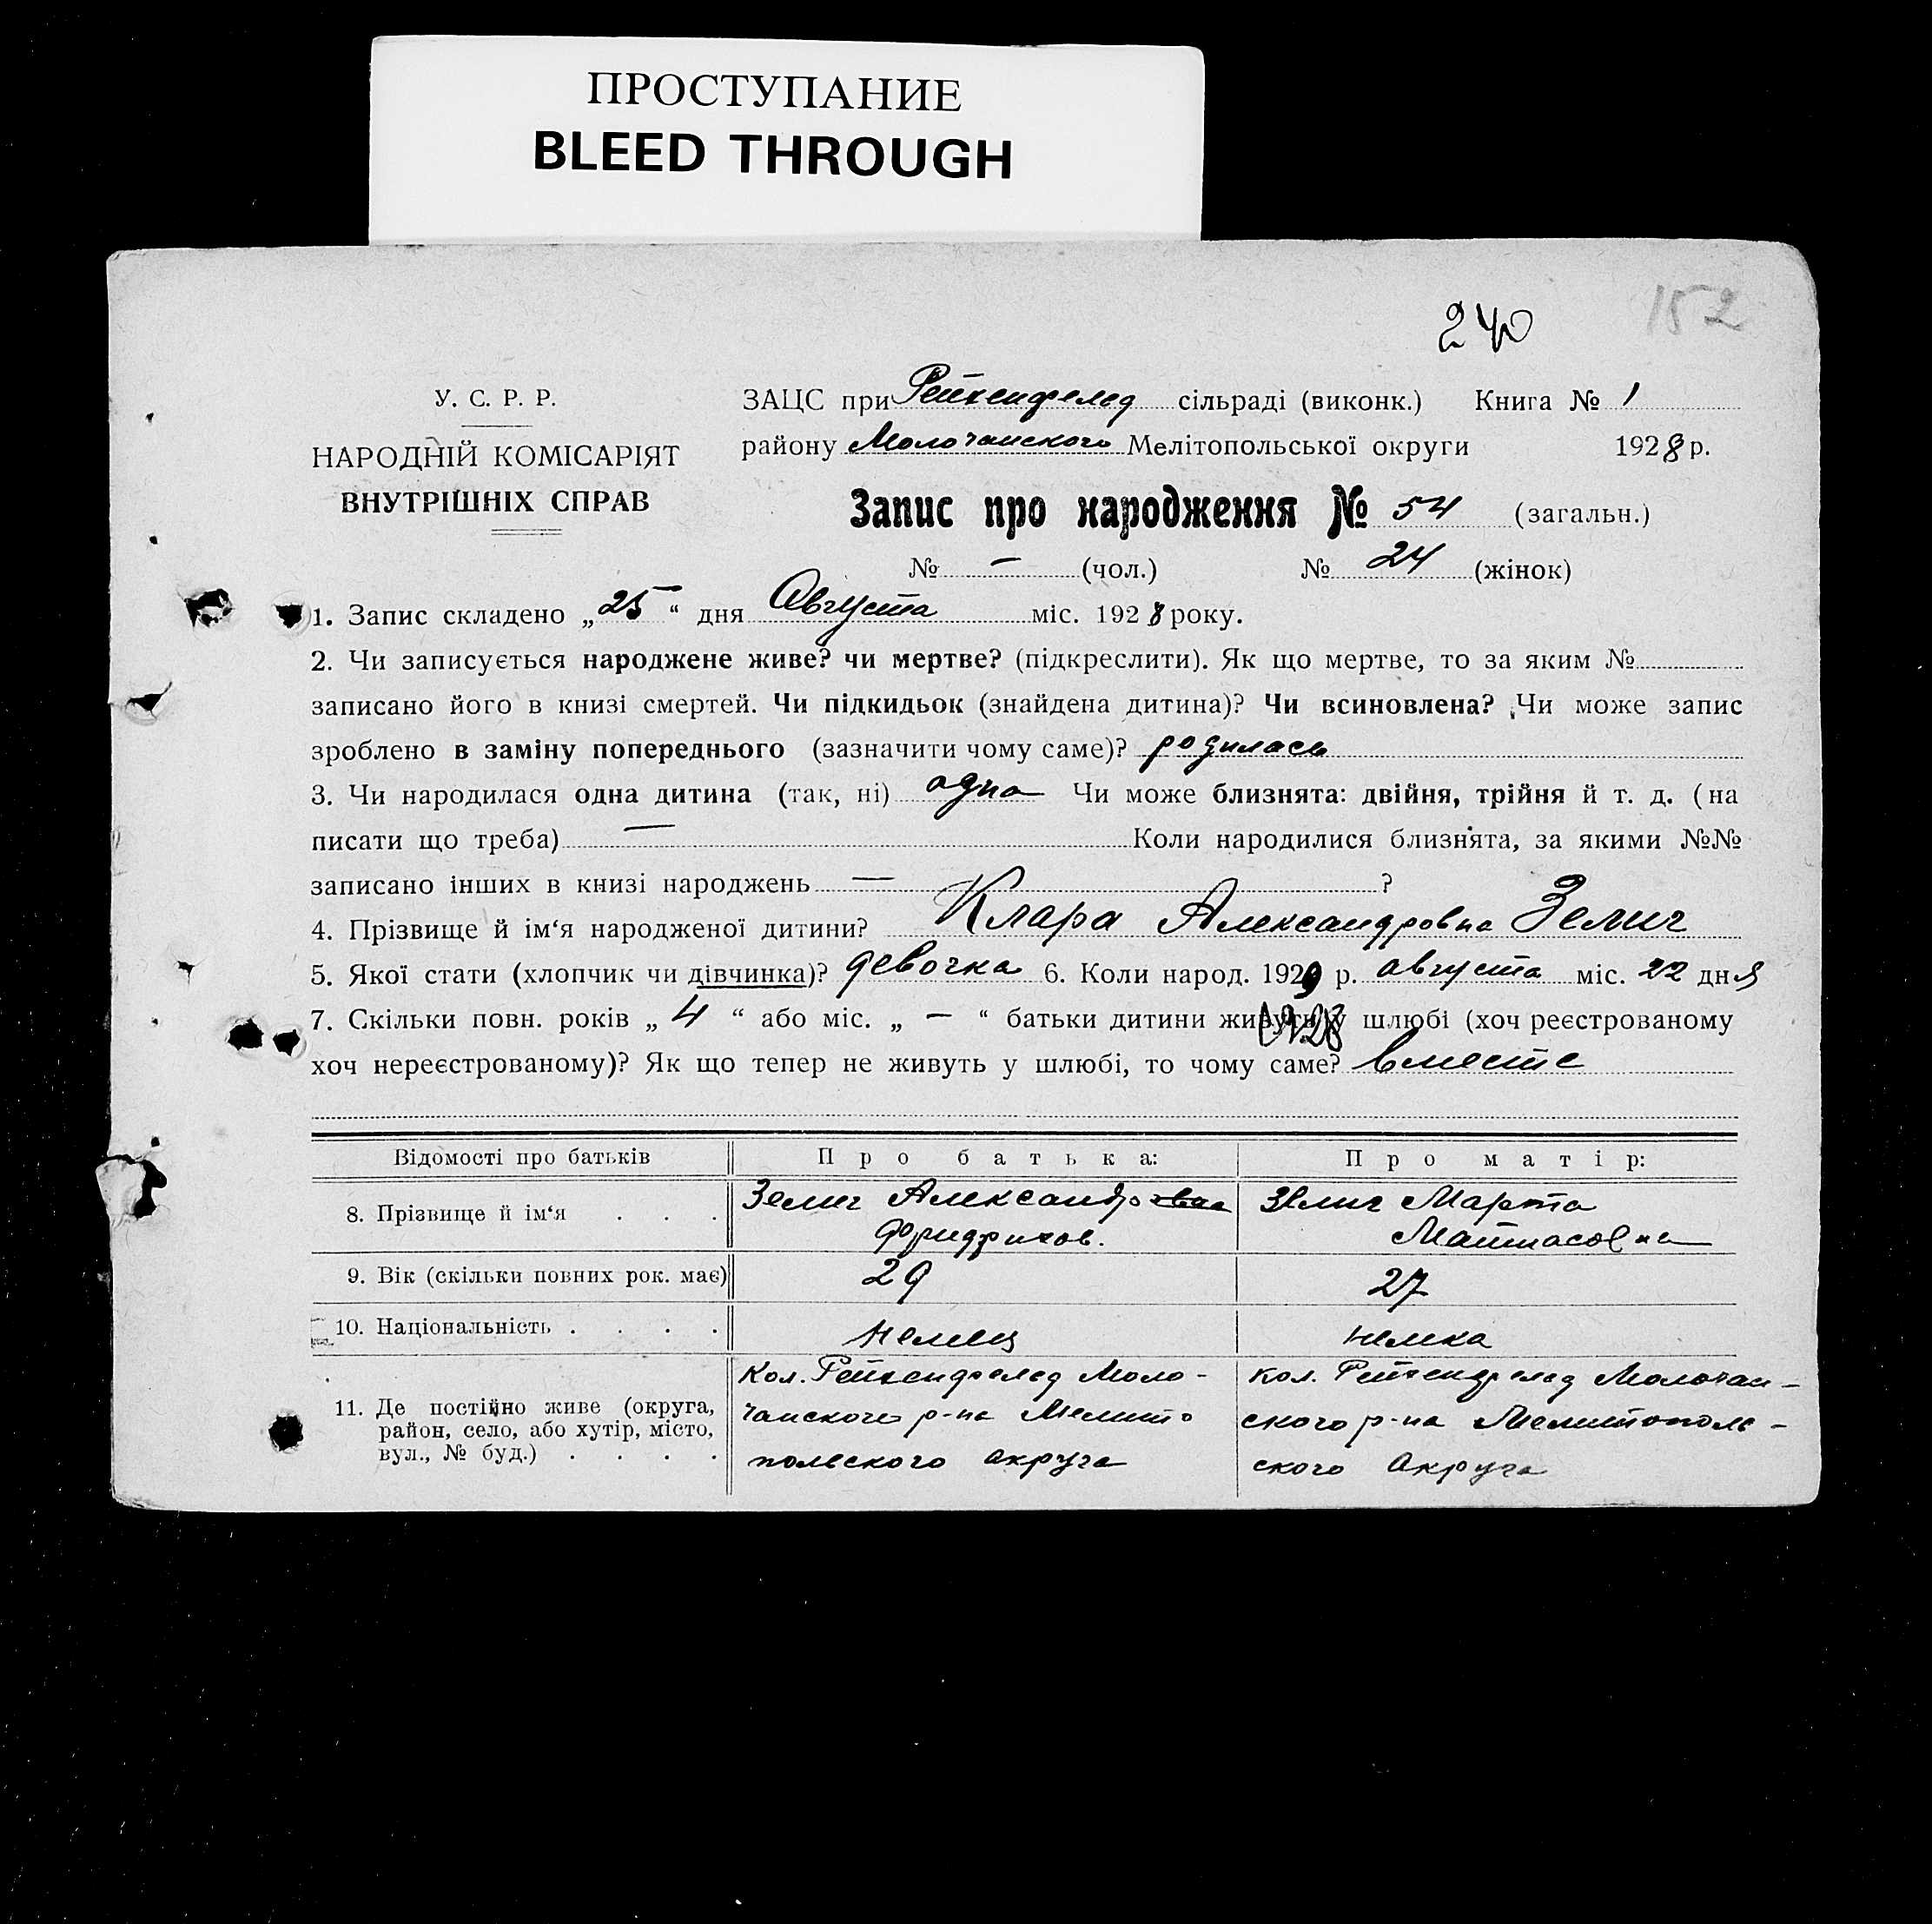 ПРОСТУПАНИЕ
BLEED THROUGH
240 152
У. С. Р. Р.
НАРОДНІЙ КОМІСАРІЯТ
ВНУТРІШНІХ СПРАВ
ЗАЦС при Рейхенфелод сільраді (виконк.) Книга № 1
району Молочанского Мелітопольської округи 1928 р.
Запис про народження № 54 (загальн.)
№ — (чол.) № 24 (жінок)
1. Запис складено „25“ дня Августа міс. 1928 року.
2. Чи записується народжене живе? чи мертве? (підкреслити). Як що мертве, то за яким №
записано його в книзі смертей. Чи підкидьок (знайдена дитина)? Чи всиновлена? Чи може запис
зроблено в заміну попереднього (зазначити чому саме)? родилась
3. Чи народилася одна дитина (так, ні) одна Чи може близнята: двійня, трійня й т. д. (на
писати що треба) — Коли народилися близнята, за якими №№
записано інших в книзі народжень — ?
4. Прізвище й ім‘я народженої дитини? Клара Александровна Зелиг
5. Якої стати (хлопчик чи дівчинка)? девочка 6. Коли народ. 1929 р. августа міс. 22 дня
1928
7. Скільки повн. років „ 4 “ або міс. „ — “ батьки дитини живуть у шлюбі (хоч реєстрованому
хоч нереєстрованому)? Як що тепер не живуть у шлюбі, то чому саме? вместе
Відомості про батьків Про батька: Про матір:
8. Прізвище й ім‘я . . . Зелиг Александр Фридрихов. Зелиг Марта Матиасовна
9. Вік (скільки повних рок. має) 29 27
10. Національність . . . . немец немка
11. Де постійно живе (округа,
район, село, або хутір, місто,
вул., № буд.) . . . .
Кол. Рейхенфелод Моло-
чанского р-на Мелито
польского округа
кол. Рейхенфелод Молочан-
ского р-на Мелитополь-
ского округа